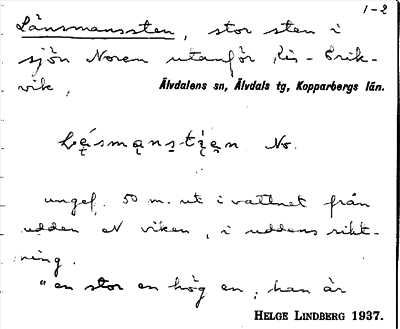 1-2
Länsmanssten, stor sten i
sjön Noren utanför Ris-Erik-
vik,
Älvdalens sn, Älvdals tg, Kopparbergs län.
No.
ungef. 50 m. ut i vattnet från
udden av viken, i uddens rikt-
ning.
"en stor en hög en, han är
HELGE LINDBERG 1937.